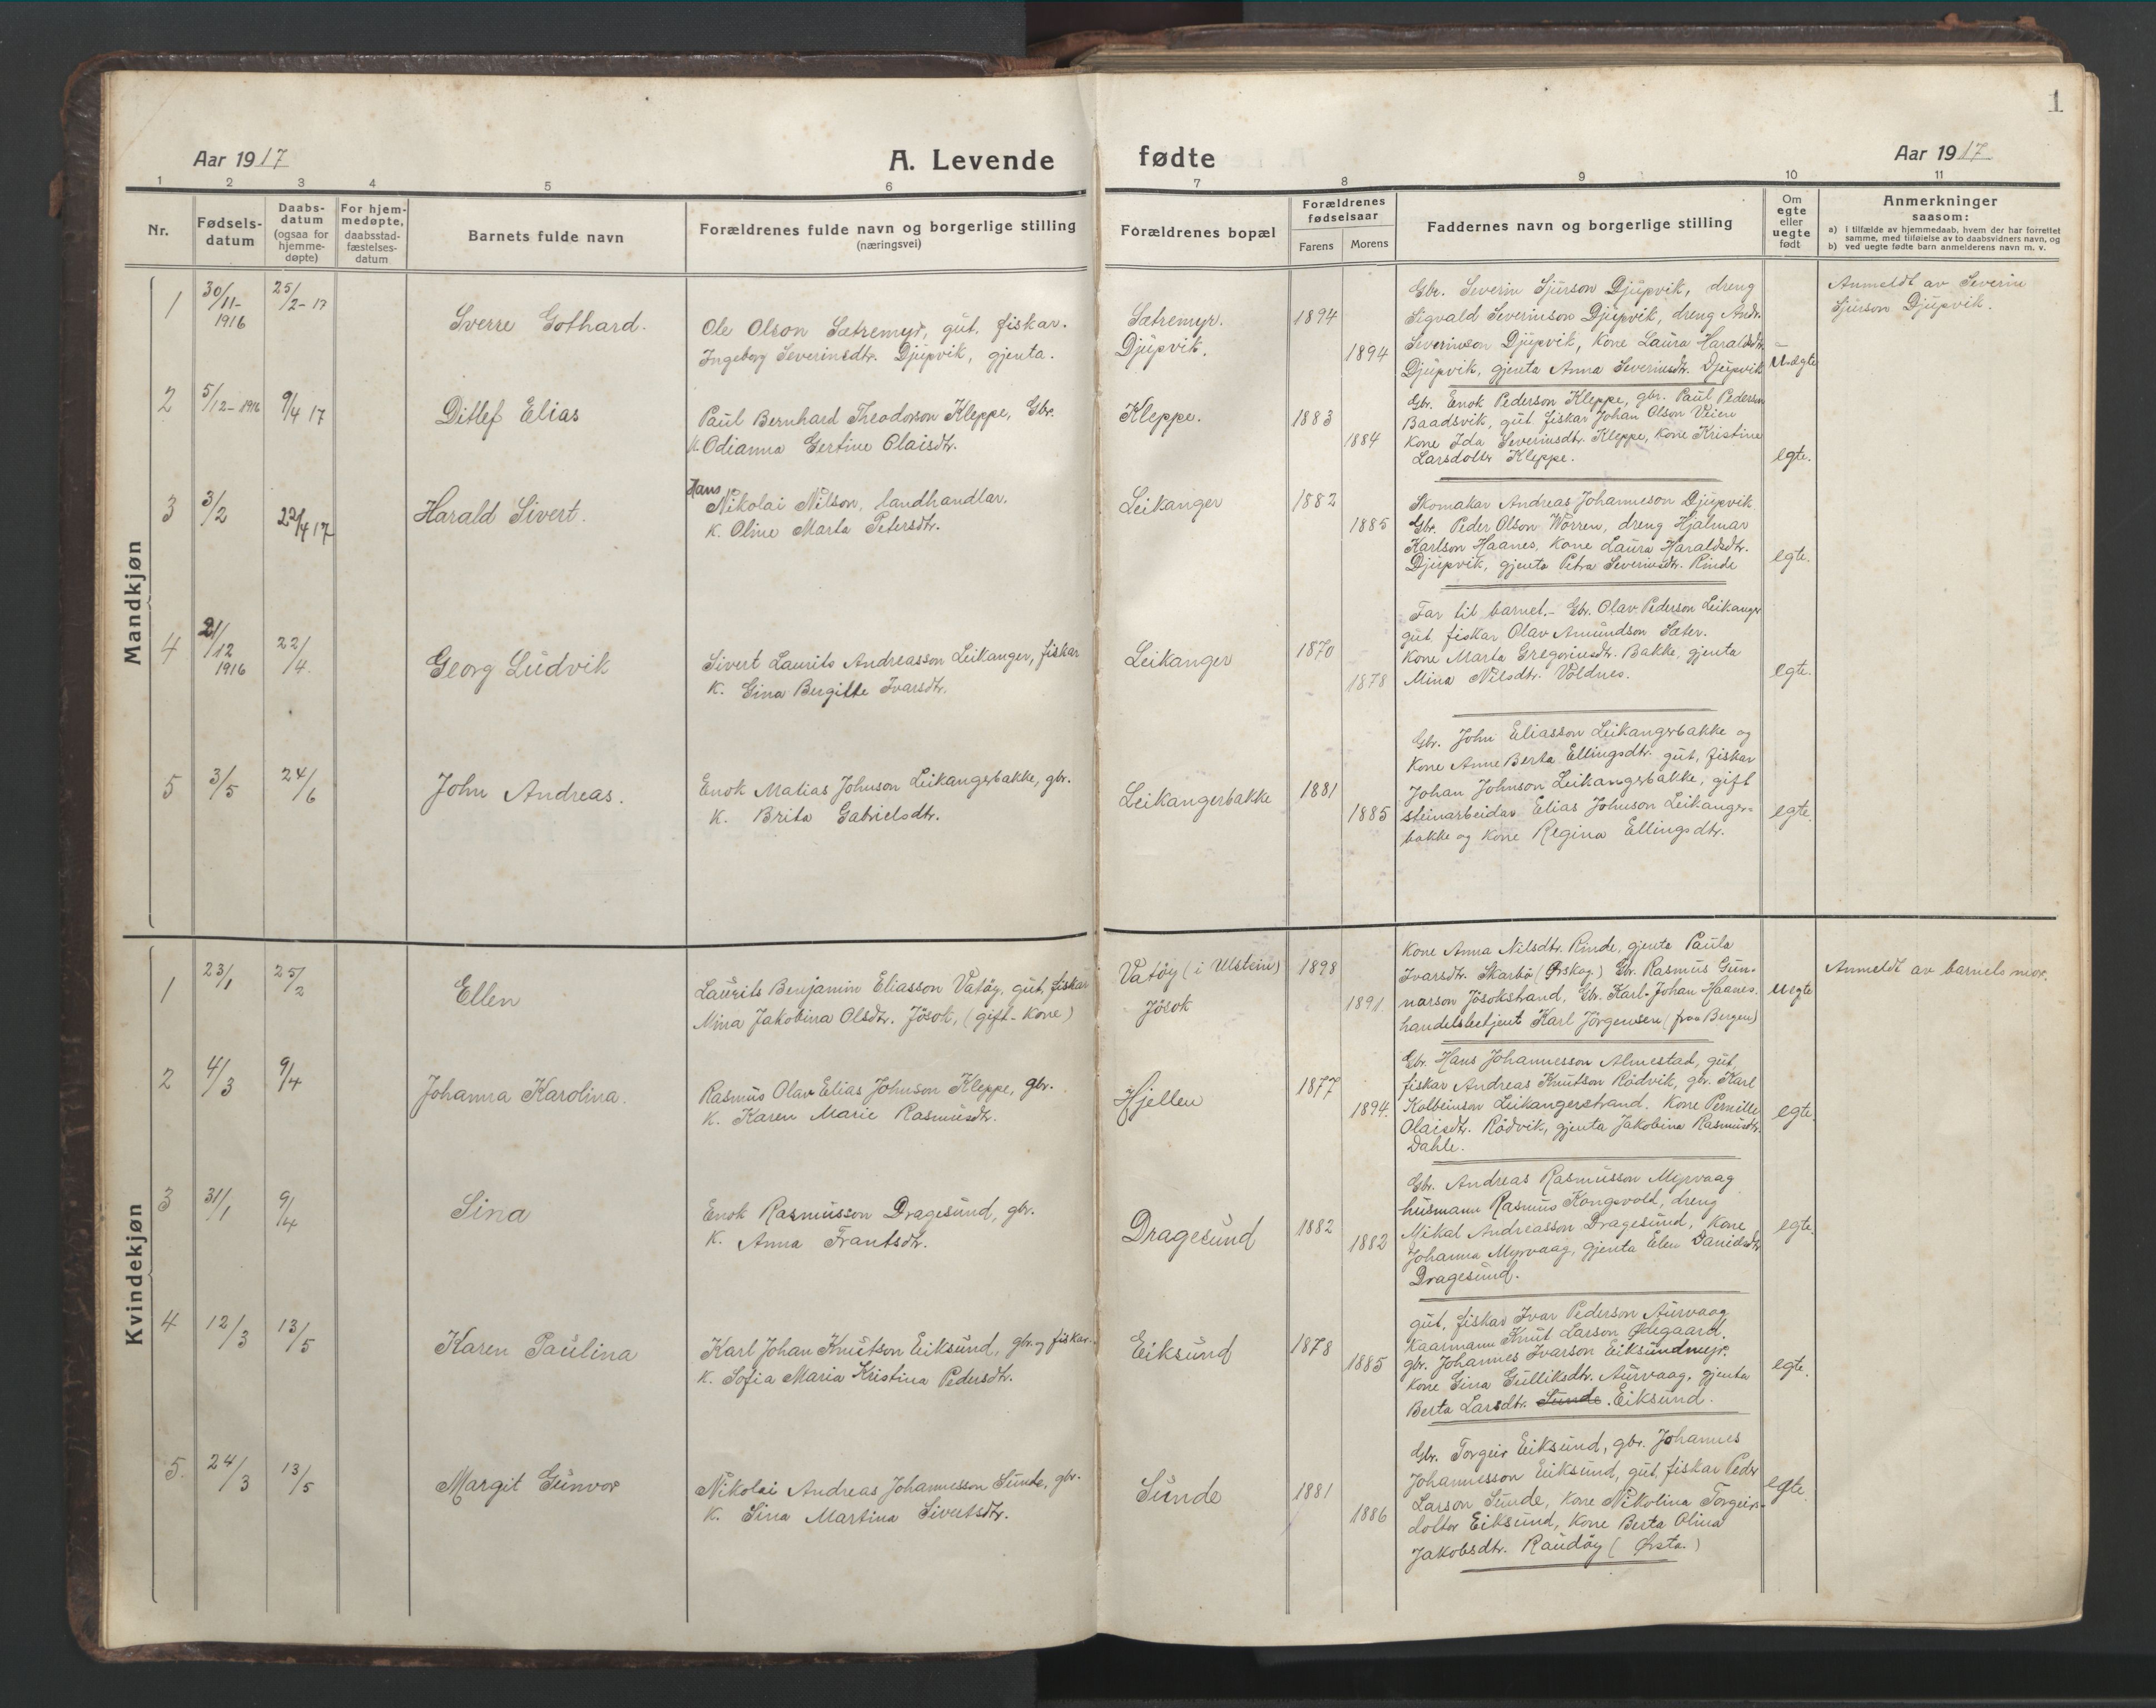 1
Aar 1917
A. Levende
fødte
Aar 1917
1 2 3 4 5 6 7 8 9 10 11
Nr.
Fødsels-
datum
Daabs-
datum
(ogsaa for
hjemme-
døpte)
For hjem-
medøpte,
daabsstad-
fæstelses-
datum
Barnets fulde navn
Forældrenes fulde navn og borgerlige stilling
(næringsvei)
Forældrenes bopæl
Forældrenes
fødselsaar
Farens Morens
Faddernes navn og borgerlige stilling
Om
egte
eller
uegte
født
Anmerkninger
saasom:
a) i tilfælde av hjemmedaab, hvem der har forrettet
samme, med tilføielse av to daabsvidners navn, og
b) ved uegte fødte barn anmelderens navn m. v.
Mandkjøn
1
30/11-
1916
25/2-17
Sverre Gothard.
Ole Olson Sætremyr, gut, fiskar.
Ingeborg Severinsdtr. Djupvik, gjenta.
Sætremyr.
Djupvik.
1894
1894
Gbr. Severin Sjurson Djupvik, dreng
Sigvald Severinson Djupvik, dreng Andr.
Severinson Djupvik, Kone Laura Haraldsdtr.
Djupvik, gjenta Anna Severinsdtr. Djupvik
Uegte
Anmeldt av Severin
Sjurson Djupvik.
2
5/12-1916
9/4 17
Ditlef Elias
Paul Bernhard Theodorson Kleppe, Gbr.
K. Odianna Gertine Olaisdtr.
Kleppe.
1883
1884
Gbr. Enok Pederson Kleppe, gbr. Paul Pederson
Baadsvik, gut fiskar Johan Olson Veien
Kone Ida Severinsdtr. Kleppe, Kone Kristine
Larsdottr Kleppe.
egte.
3
3/2
22/4 17
Harald Sivert.
Hans
Nikolai Nilson, landhandlar.
K. Oline Marta Petersdtr.
Leikanger
1882
1885
Skomakar Andreas Johanneson Djupvik
Gbr. Peder Olson Worren, dreng Hjalmar
Karlson Haanes, Kone Laura Haraldsdtr.
Djupvik, gjenta Petra Severinsdtr. Rinde
egte.
4
21/12
1916
22/4.
Georg Ludvik
Sivert Laurits Andreasson Leikanger, fiskar
K. Gina Bergitte Ivarsdtr.
Leikanger
1870
1878
Far til barnet. - Gbr. Olav Pederson Leikanger
gut, fiskar Olav Amundson Sæter.
Kone Marta Gregoriusdtr. Bakke, gjenta
Mina Nilsdtr. Voldnes.
egte.
5
3/5
24/6
John Andreas.
Enok Matias Johnson Leikangerbakke, gbr.
K. Brita Gabrielsdtr.
Leikangerbakke
1881
1885
Gbr. John Eliasson Leikangerbakke og
Kone Anne Berta Ellingsdtr. gut, fiskar
Johan Johnson Leikangerbakke, gift
steinarbeidar Elias Johnson Leikanger-
bakke og Kone Regina Ellingsdtr.
egte.
Kvindekjøn
1
23/1
25/2
Ellen
Laurits Benjamin Eliasson Vatöy, gut, fiskar
Mina Jakobina Olsdtr. Jösok, (gift - Kone)
Vatöy (i Ulstein)
Jösok
1898
1891.
Kone Anna Nilsdtr. Rinde, gjenta Paula
Ivarsdtr. Skarbö (Ørskog.) Gbr. Rasmus Gun-
narson Jösokstrand, Gbr. Karl-Johan Haanes.
handelsbetjent Karl Jörgensen (fraa Bergen)
uegte
Anmeldt av barnets mor.
2
4/3
9/4
Johanna Karolina.
Rasmus Olav Elias Johnson Kleppe, gbr.
K. Karen Marie Rasmusdtr.
Hjellen
1877
1894.
Gbr. Hans Johannesson Almestad, gut,
fiskar Andreas Knutson Rödvik, gbr. Karl
Kolbeinson Leikangerstrand. Kone Pernille
Olaisdtr. Rödvik, gjenta Jakobina Rasmusdtr.
Dahle.
egte.
3
31/1
9/4
Sina
Enok Rasmusson Dragesund, gbr.
K. Anna Frantsdtr.
Dragesund
1882
1882
Gbr. Andreas Rasmusson Myrvaag
husmann Rasmus Kongsvold, dreng
Mikal Andreasson Dragesund, Kone
Johanna Myrvaag, gjenta Elen Danielsdtr
Dragesund.
egte.
4
12/3
13/5
Karen Paulina
Karl Johan Knutson Eiksund, gbr. og fiskar.
K. Sofia Maria Kristina Pedersdtr.
Eiksund
1878
1885
gut, fiskar Ivar Pederson Aurvaag
Kaarmann Knut Larson Ødegaard.
gbr. Johannes Ivarson Eiksundmyr.
Kone Gina Gulliksdtr. Aurvaag, gjenta
Berta Larsdtr. Sunde. Eiksund.
egte.
5.
24/3
13/5
Margit Gunvor
Nikolai Andreas Johannesson Sunde, gbr.
K. Sina Martina Sivertsdtr.
Sunde
1881
1886
Gbr. Torgeir Eiksund, gbr. Johannes
Johannesson Eiksund, gut, fiskar Peder
Larson Sunde, Kone Nikolina Torgeirs-
dotter Eiksund, Kone Berta Olina
Jakobsdtr. Raudöy (Ørsta.)
egte.